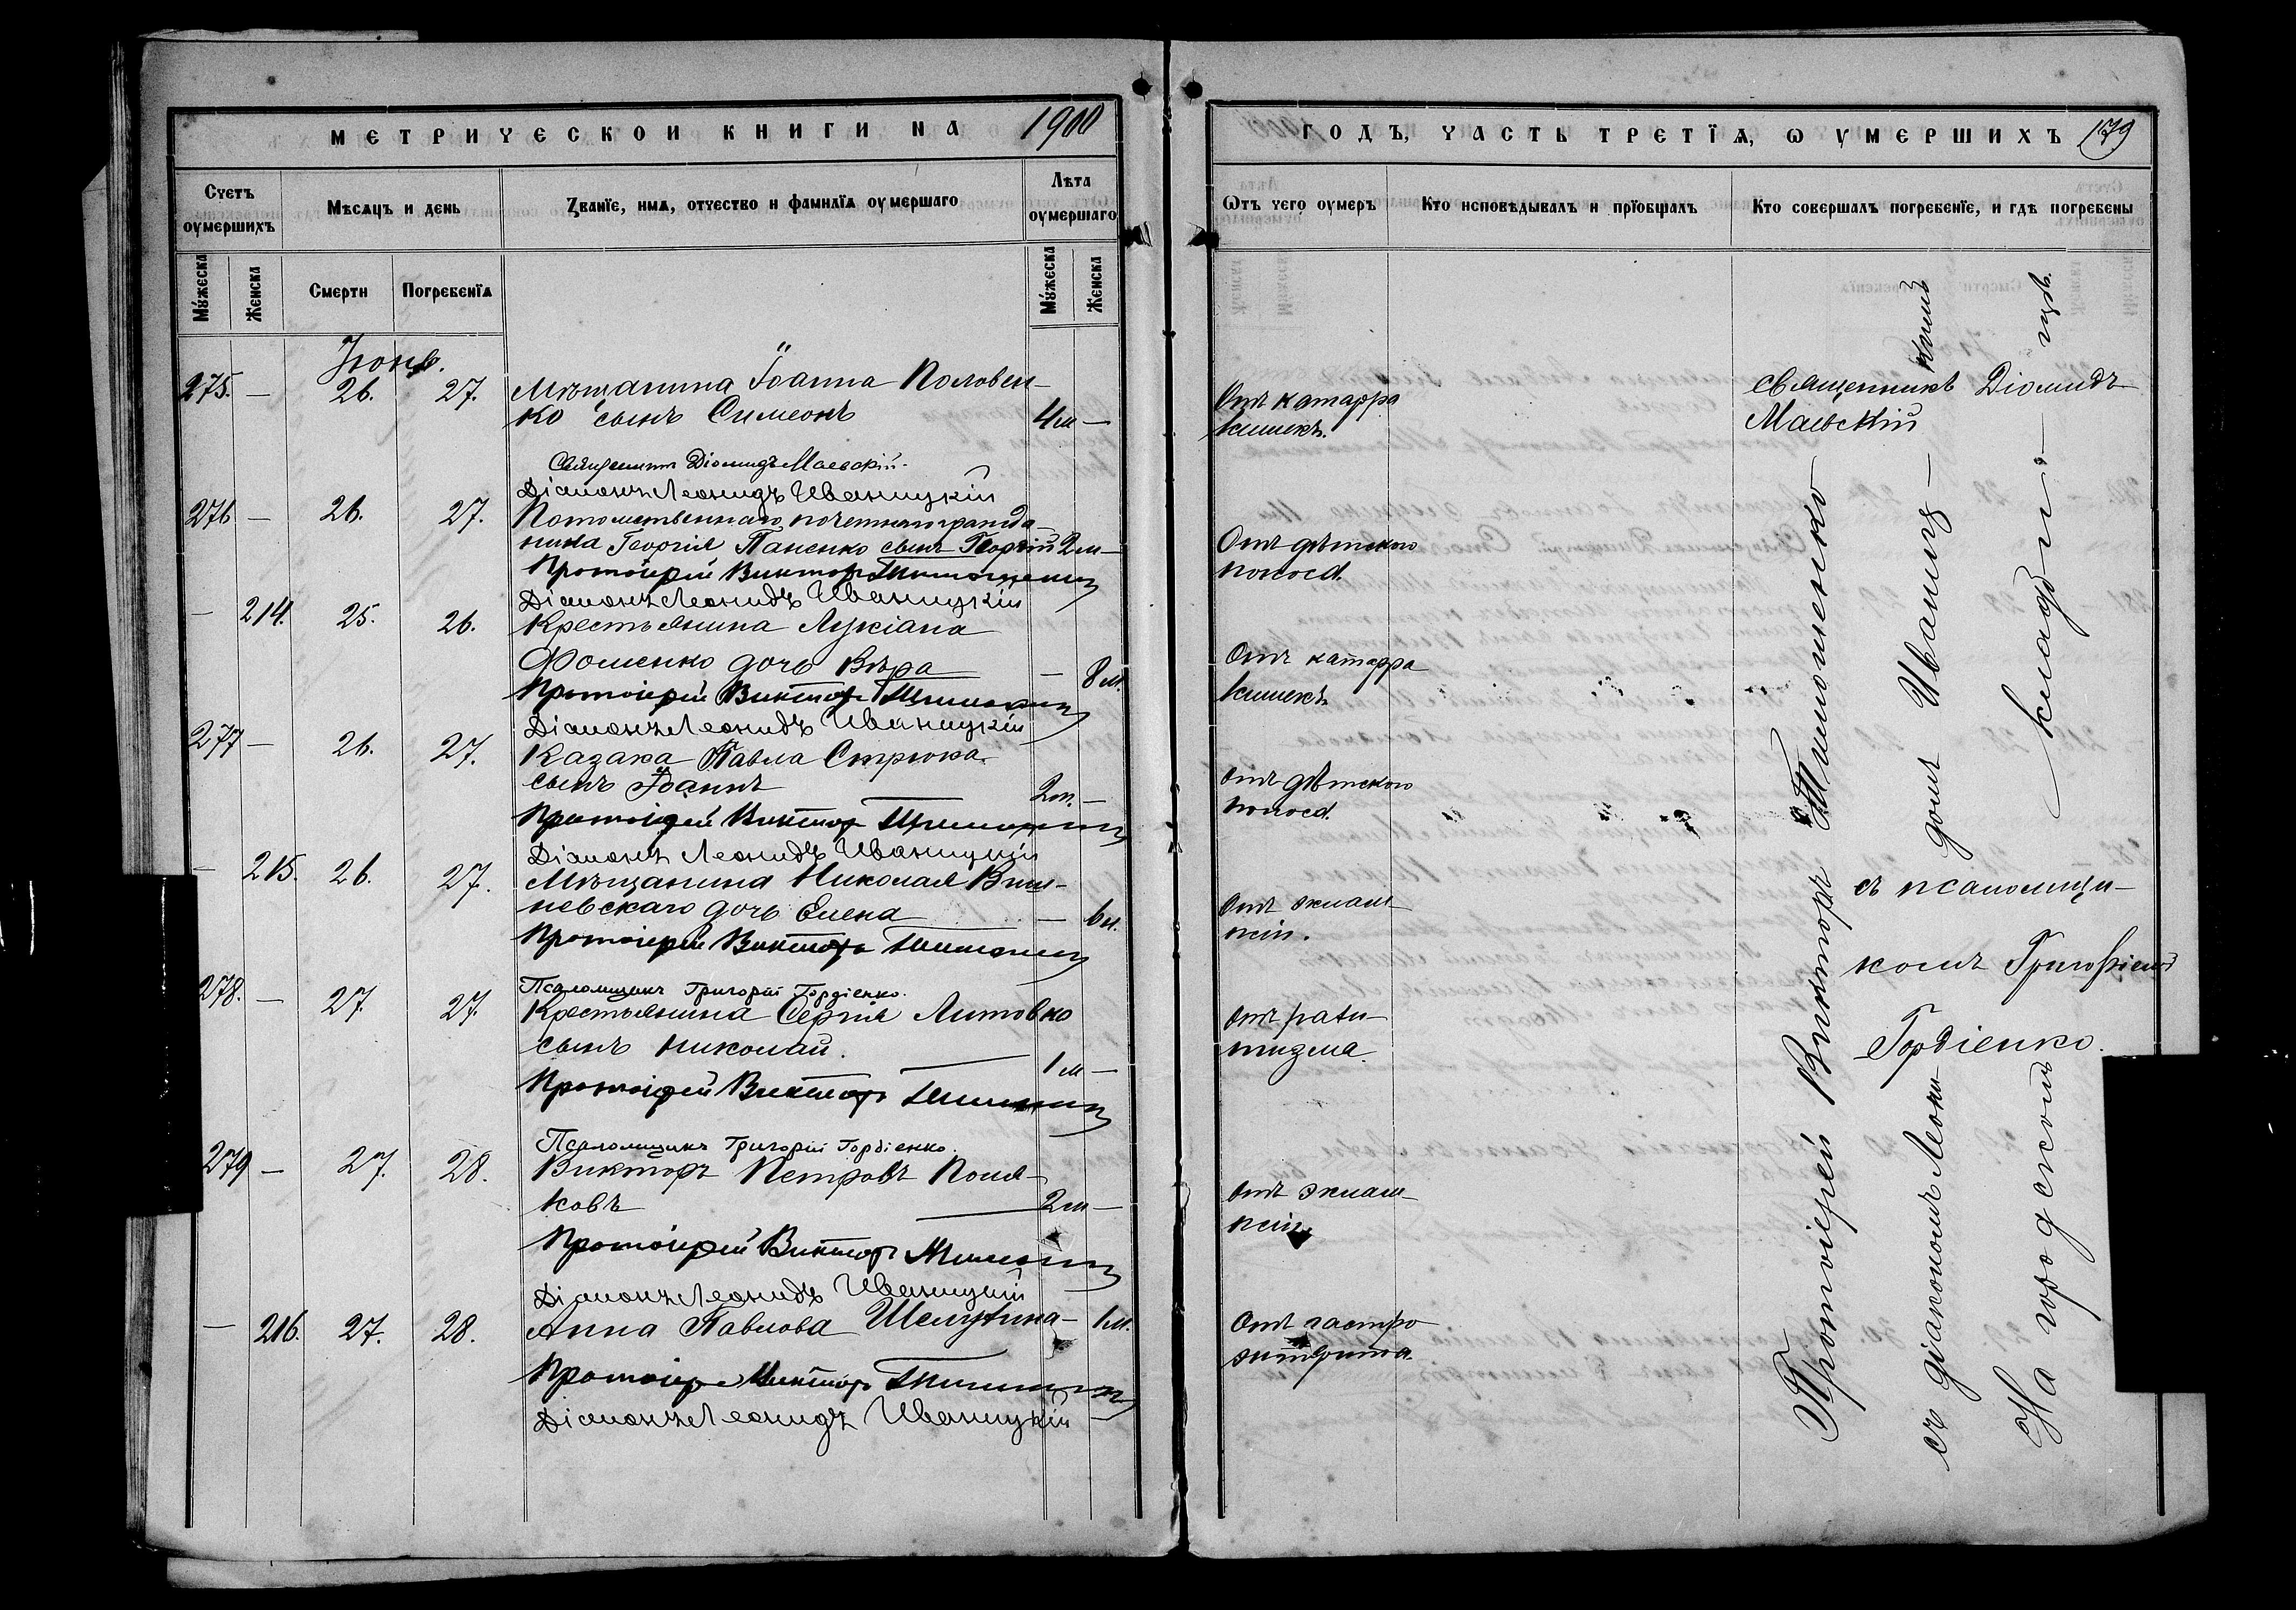 МЕТРИЧЕСКОЙ КНИГИ НА 1900
Счетъ оумершихъ
Мѣсяцъ и день
Званїе, имя, отчество и фамилїя оумершаго
Лѣта оумершаго
Мужеска
Женска
Смерти
Погребенїя
Мужеска
Женска
Іюнь.
275. — 26. 27. Мѣщанина Іоанна Половен-
ко сынъ Симеонъ 4 м —
Священникъ Діомидъ Маевскій.
Діаконъ Леонидъ Иваницкій
276 — 26. 27. Потомственнаго почетнаго гражда-
нина Георгія Паненко сынъ Георгій 2 м —
Протоіерей Викторъ Тимошенко
Діаконъ Леонидъ Иваницкій
— 214. 25. 26. Крестьянина Лукіана
Фоменко дочь Вѣра — 8 м.
Протоіерей Викторъ Тимошенко
Діаконъ Леонидъ Иваницкій
277 — 26. 27. Казака Павла Стрюка
сынъ Іоаннъ 2 м. —
Протоіерей Викторъ Тимошенко
Діаконъ Леонидъ Иваницкій
— 215. 26. 27. Мѣщанина Николая Виш-
невскаго дочь Елена — 6 м.
Протоіерей Викторъ Тимошенко
Псаломщикъ Григорій Гордіенко.
278. — 27. 27. Крестьянина Сергія Литовко
сынъ Николай. 1 м —
Протоіерей Викторъ Тимошенко
Псаломщикъ Григорій Гордіенко.
279 — 27. 28. Викторъ Петровъ Поля-
ковъ 2 м —
Протоіерей Викторъ Тимошенко
Діаконъ Леонидъ Иваницкій
— 216. 27. 28. Анна Павлова — 1 м.
Протоіерей Викторъ Тимошенко
Діаконъ Леонидъ Иваницкій
ГОДЪ, ЧАСТЬ ТРЕТЇѦ, Ѡ УМЕРШИХЪ 179
Ѿтъ чего оумеръ
Кто исповѣдывалъ и прїобщалъ
Кто совершалъ погребенїе, и гдѣ погребены
Отъ катарра
кишекъ.
Священникъ Діомидъ
Маевскій
Отъ дѣтскаго
поноса.
Отъ катарра
кишекъ
Отъ дѣтскаго
поноса.
Отъ эклам-
псіи.
Отъ рахи-
тизма.
Отъ эклам-
псіи.
Отъ гастро
энтерита.
съ псаломщи-
комъ Григоріемъ
Гордіенко.
Протоіерей Викторъ Тимошенко
съ діакономъ Леони-
домъ Иваниц-
кимъ
На городскомъ
кладби-
щѣ.